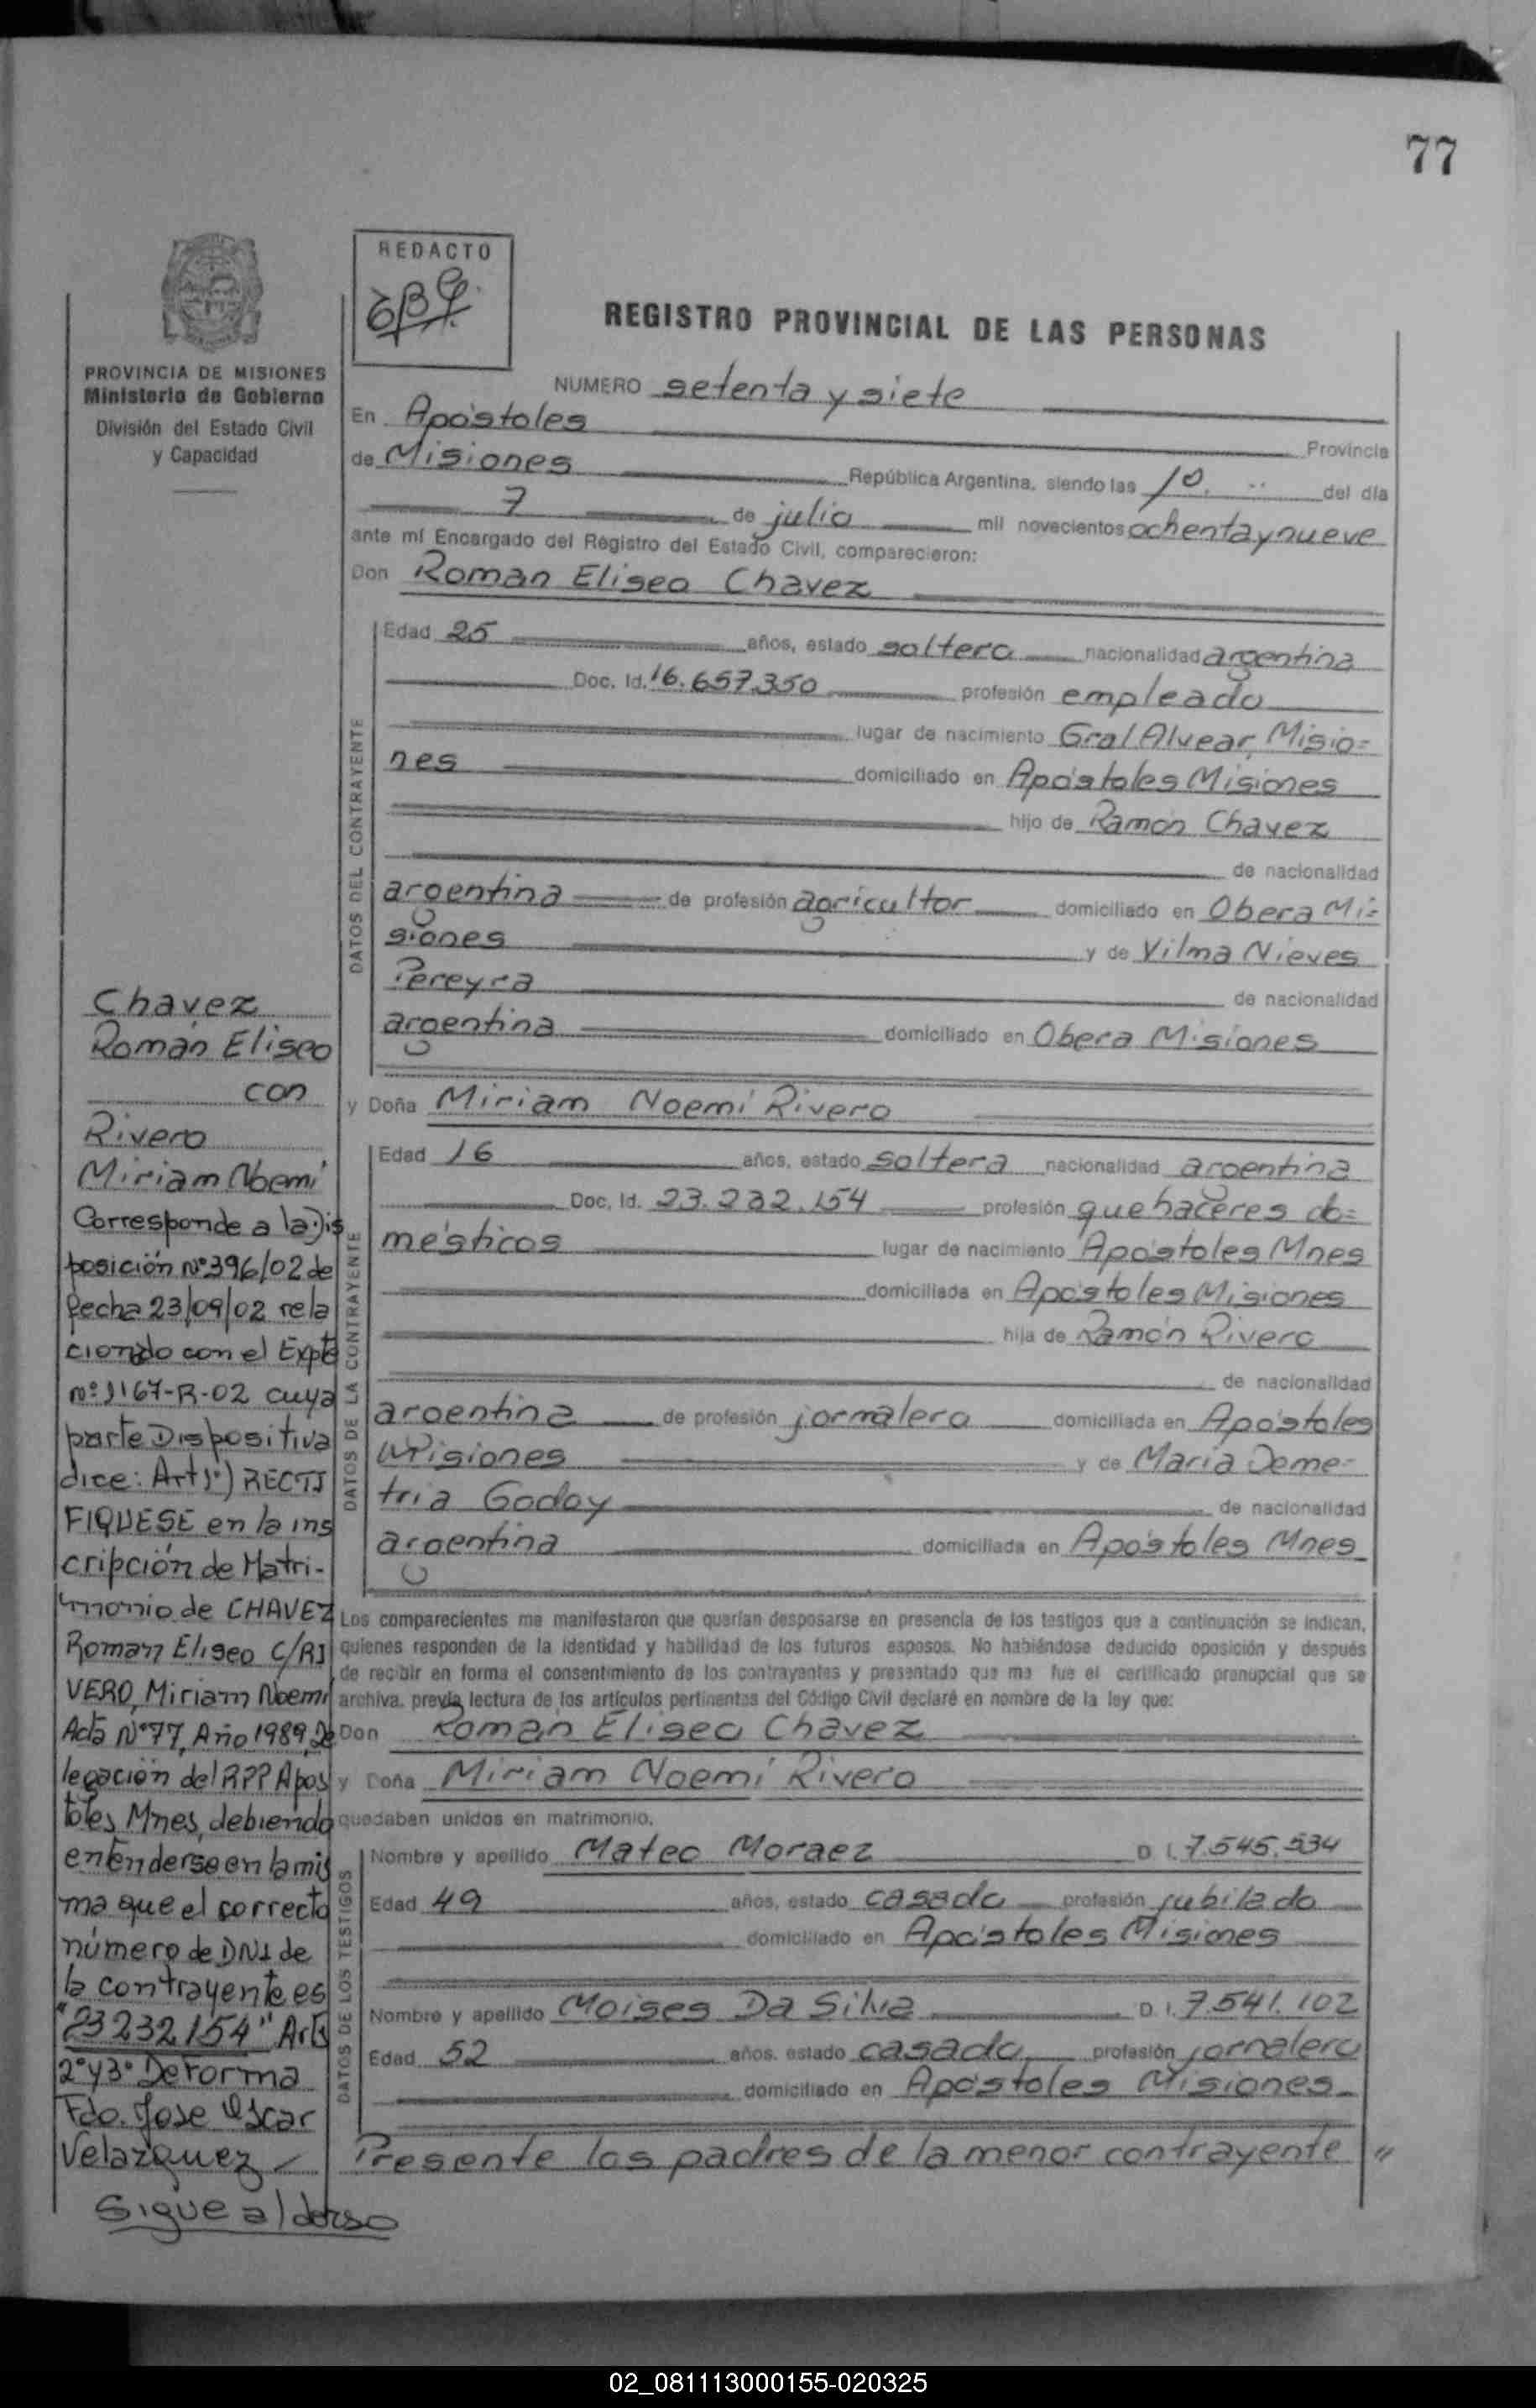 77
REDACTO
PROVINCIA DE MISIONES
Ministerio de Gobierno
División del Estado Civil
y Capacidad
REGISTRO PROVINCIAL DE LAS PERSONAS
NUMERO setenta y siete
En Apóstoles Provincia
de Misiones República Argentina, siendo las 10. del día
7 de julio mil novecientos ochenta y nueve
ante mí Encargado del Registro del Estado Civil, comparecieron:
Don Román Eliseo Chavez
DATOS DEL CONTRAYENTE
Edad 25 años, estado soltero nacionalidad argentina
Doc. Id. 16.657.350 profesión empleado
lugar de nacimiento Gral Alvear, Misio=
nes domiciliado en Apóstoles Misiones
hijo de Ramón Chavez
de nacionalidad
argentina de profesión agricultor domiciliado en Obera Mi=
siones y de Vilma Nieves
Pereyra de nacionalidad
argentina domiciliado en Obera Misiones
y Doña Miriam Noemí Rivero
DATOS DE LA CONTRAYENTE
Edad 16 años, estado soltera nacionalidad argentina
Doc. Id. 23.232.154 profesión quehaceres do=
mésticos lugar de nacimiento Apóstoles Mnes
domiciliada en Apóstoles Misiones
hija de Ramón Rivero
de nacionalidad
argentina de profesión jornalero domiciliada en Apóstoles
Misiones y de María Deme-
tria Godoy de nacionalidad
argentina domiciliada en Apóstoles Mnes
Los comparecientes me manifestaron que querían desposarse en presencia de los testigos que a continuación se indican,
quienes responden de la identidad y habilidad de los futuros esposos. No habiéndose deducido oposición y después
de recibir en forma el consentimiento de los contrayentes y presentado que me fue el certificado prenupcial que se
archiva, previa lectura de los artículos pertinentes del Código Civil declaré en nombre de la ley que:
Don Román Eliseo Chavez
y Doña Miriam Noemí Rivero
quedaban unidos en matrimonio.
DATOS DE LOS TESTIGOS
Nombre y apellido Mateo Moraez D. I. 7.545.534
Edad 49 años, estado casado profesión jubilado
domiciliado en Apóstoles Misiones
Nombre y apellido Moises Da Silva D. I. 7.541.102
Edad 52 años, estado casado profesión jornalero
domiciliado en Apóstoles Misiones
Presente los padres de la menor contrayente "
Chavez
Román Eliseo
con
Rivero
Miriam Noemí
Corresponde a la Dis
posición Nº 396/02 de
fecha 23/09/02 rela
cionado con el Expte
nº 1167-R-02 cuya
parte Dispositiva
dice: Art 1º) RECTI
FIQUESE en la ins
cripción de Matri-
monio de CHAVEZ
Roman Eliseo C/RI
VERO, Miriam Noemi
Acta Nº 77, Año 1989, De
legación del RPP Apos
toles Mnes, debiendo
entenderse en la mis
ma que el correcto
número de DNI de
la contrayente es
"23 232 154" Arts
2º y 3º De Forma
Fdo. Jose Oscar
Velazquez
Sigue al dorso
02_081113000155-020325